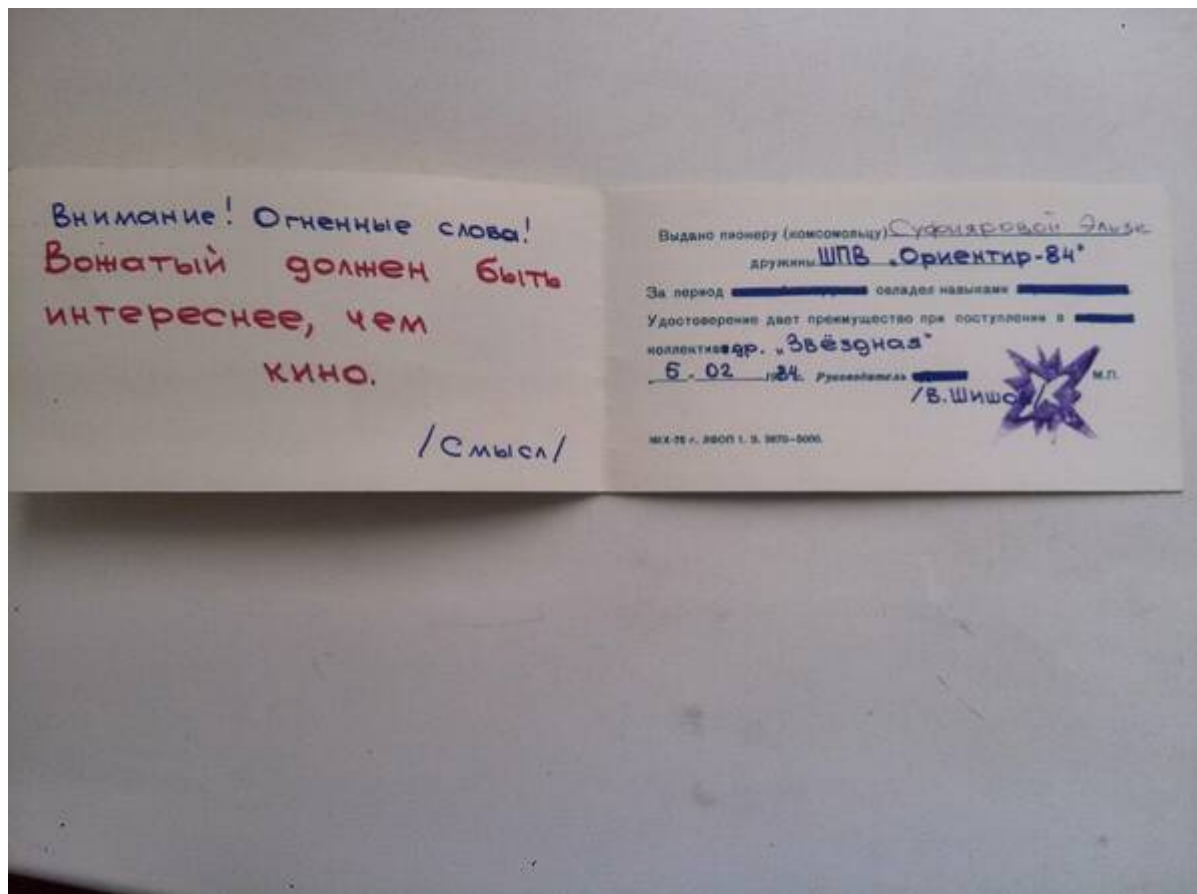 Внимание! Огненные слова!
Вожатый должен быть
интереснее, чем
кино.
/Смысл/
Выдано пионеру (комсомольцу) Суфияровой Эльзе
дружины ШПВ „Ориентир-84"
За период овладел навыками
Удостоверение дает преимущество при поступлении в
коллектив др. „Звёздная"
5. 02 1984 Руководитель
/В. М.П.